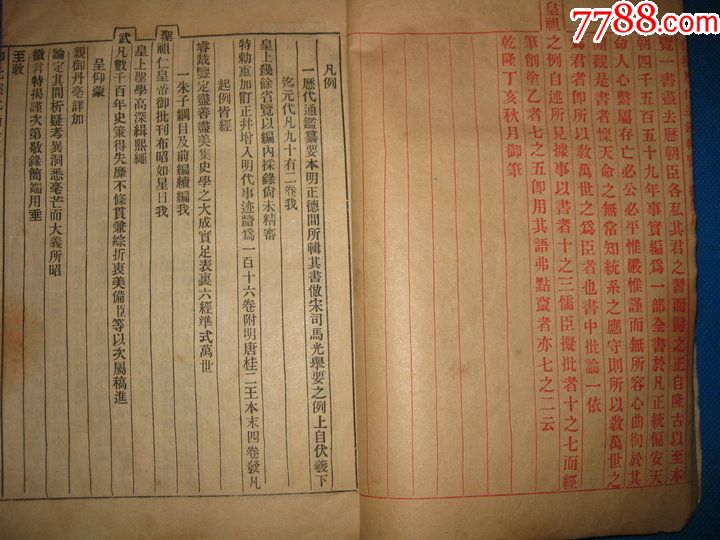 7788.com
覽一書盡去歷朝臣各私其君之習而歸之正自隆古以至本
朝四千五百五十九年事實編為一部全書於凡正統偏安天
命人心繫屬存亡必公必平惟嚴惟謹而無所容心曲徇於其
間觀是書者惕天命之無常知統系之應守則所以教萬世之
為君者即所以教萬世之為臣者也書中批論一依
皇祖之例自述所見據事以書者十之三儒臣擬批者十之七而經
筆削塗乙者七之五即用其語弗點竄者亦七之二云
乾隆丁亥秋月御筆
凡例
一歷代通鑑纂要本明正德間所輯其書倣宋司馬光舉要之例上自伏羲下
迄元代凡九十有二卷我
皇上幾餘省覽以編內採錄尚未精審
特勅重加訂正幷增入明代事迹釐為一百十六卷附明唐桂二王本末四卷發凡
起例皆經
睿裁鑒定盡善盡美集史學之大成實足表裏六經準式萬世
一朱子綱目及前編續編我
聖祖仁皇帝御批刊布昭如星日我
皇上聖學高深緝熙繩
武凡數千百年史策得失靡不條貫兼綜折衷美備臣等以次屬稿進
呈仰蒙
親御丹毫詳加
論定其間析疑考異洞悉毫芒而大義所昭
徽言特揭謹次第敬錄簡端用垂
至教